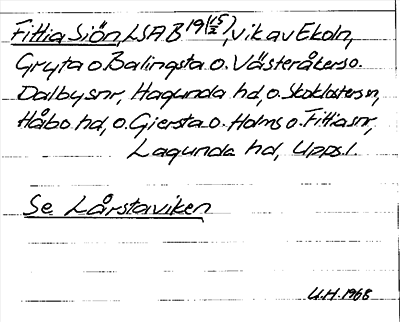 Fittia Sjön, LSA B 19 (15/2), vik av Ekoln,
Gryta o. Balingsta o. Västeråkers o.
Dalby snr, Hagunda hd, o. Skoklosters sn,
Håbo hd, o. Giersta o. Holms o. Fittia snr,
Lagunda hd, Upps. l.
Se Lårstaviken
U.H. 1968